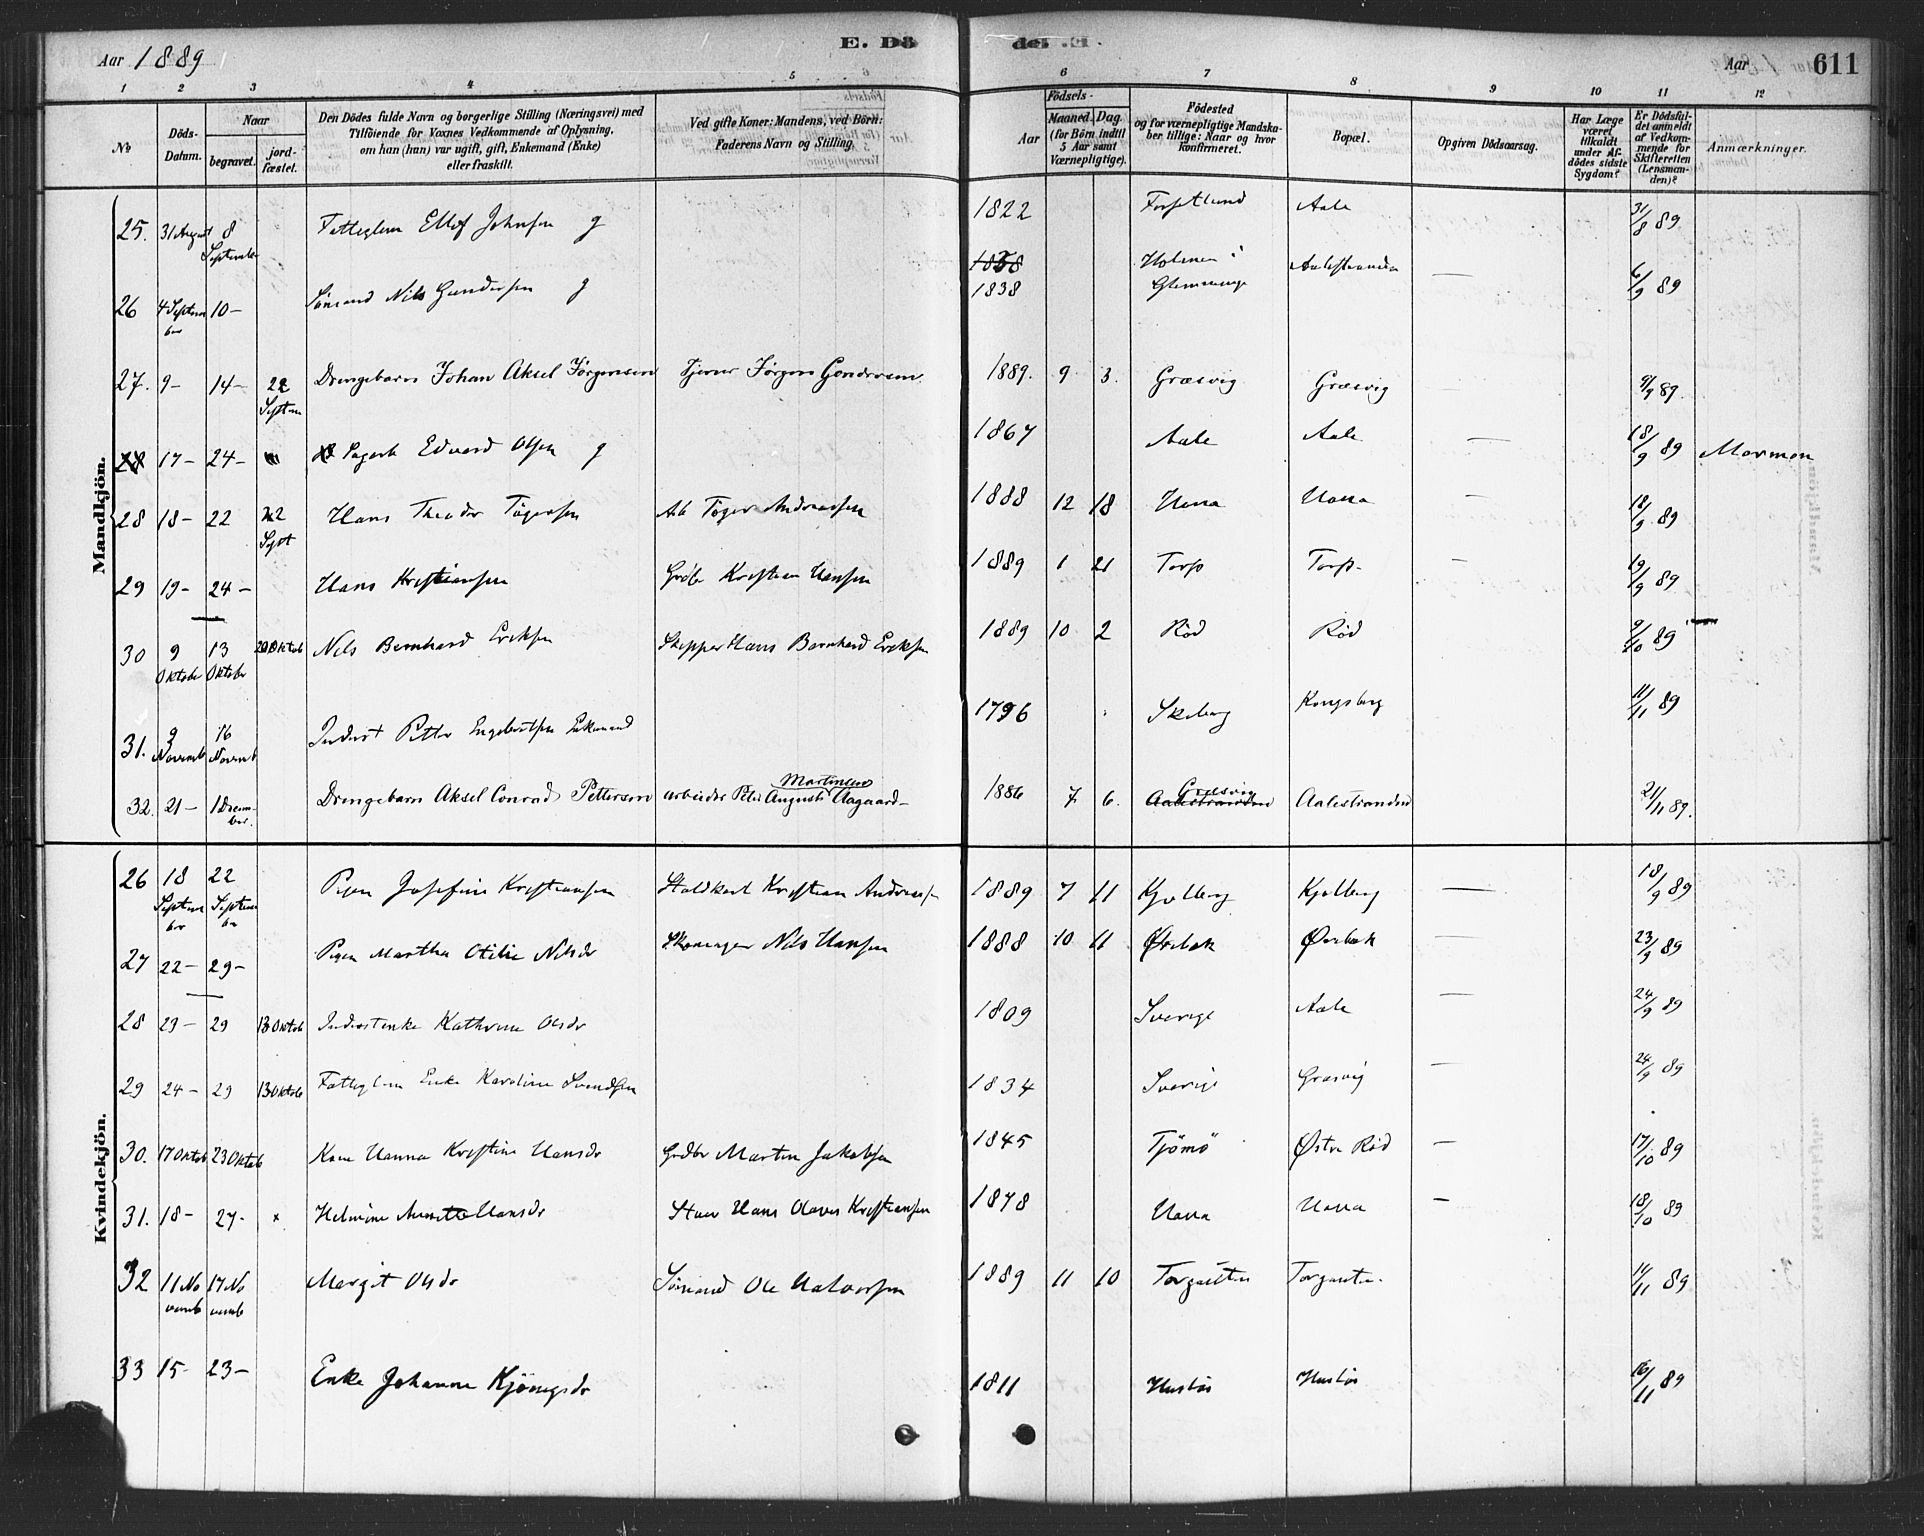 Aar 1889
E. Dö
de .E.
Aar
611
1 2 3 4 5 6 7 8 9 10 11 12
No
Döds-Datum.
Naar
begravet.
jord-fæstet.
Den Dödes fulde Navn og borgerlige Stilling (Næringsvei) med
Tilföiende for Voxnes Vedkommende af Oplysning,
om han (hun) var ugift, gift, Enkemand (Enke)
eller fraskilt.
Ved gifte Koner: Mandens, ved Börn:
Faderens Navn og Stilling.
Aar
Födsels-
Maaned. Dag.
(for Börn indtil
5 Aar samt
Værnepligtige).
Födested
og for værnepligtige Mandska-
ber tillige: Naar og hvor
konfirmeret.
Bopæl.
Opgiven Dödsaarsag.
Har Læge
været
tilkaldt
under Af-
dödes sidste
Sygdom?
Er Dödsfal-
det anmeldt
af Vedkom-
mende for
Skifteretten
(Lensman-
den)?
Anmærkninger.
Mandkjön.
25. 31 August 8 September Fattiglem Ellef Johnsen g 1822 Aale 31/8 89
26 4 September 10 - Sömand Nils Gundersen g 1858 1838 Holmen i Glemminge Aalestranden — 6/9 89
27. 9- 14- 22 Septem Drengebarn Johan Aksel Jörgensen Tjener Jörgen Gundersen 1889. 9 3. Græsvig Græsvig 9/9 89.
28 17- 24- Edvard Olsen g 1867 Aale Aale — 18/9 89 Mormon
28 18- 22 22 Sept Hans Theodor Tögersen Arb Töger Andreassen 1888 12 18 Uara Uara - 18/9 89
29 19- 24- Hans Kristiansen Grdbr Kristian Hansen 1889 1 21 Torp Torp - 19/9 89
30 9 Oktober 13 Oktober 20 Oktob Nils Bernhard Eriksen Skipper Hans Bernhard Eriksen 1889 10 2 Röd Röd 9/10 89
31. 9 Novemb 16 Novemb Inderst Petter Engebretsen Enkemand 1796 Skiberg Kongsberg 11/11 89
32. 21- 1 Decem-ber. Drengebarn Aksel Conrad Pettersen arbeider Peter August Martinsen Aagaard- 1886 7. 6. Aalestranden Græsvig Aalestranden 21/11 89.
Kvindekjön.
26 18 September 22 September Pigen Josefine Kristiansen Staldkarl Kristian Andreasn 1889 7 11 Kjölberg Kjölberg — 18/9 89
27 22- 29- Pigen Martha Otilie Nilsdr Skomager Nils Hansen 1888 10 11 Örebæk Örebæk — 23/9 89
28 23- 29 13 Oktob Inderstenke Kathrine Olsdr 1809 Sverige Aale — 24/9 89
29 24- 29 13 Oktob Fattiglem Enke Karoline Svendsen 1834 Sverige Græsvig — 24/9 89
30. 17 Oktob 23 Oktob Kone Hanna Kristine Hansdr Grdbr Martin Jakobsen 1845 Tjömö Östre Röd — 17/10 89
31. 18- 27- x Helmine Annette Hansdr Hans Olaves Kristiansen 1878 Uara Uara - 18/10 89
32 11 Novemb 17 Novemb Margit Olsdr Sömand Ole Halvorsen 1889 11 10 Torgauten Torgauten. 11/11 89
33 15- 23- Enke Johanne Kjönigsdr 1811 Huslös Huslös 16/11 89